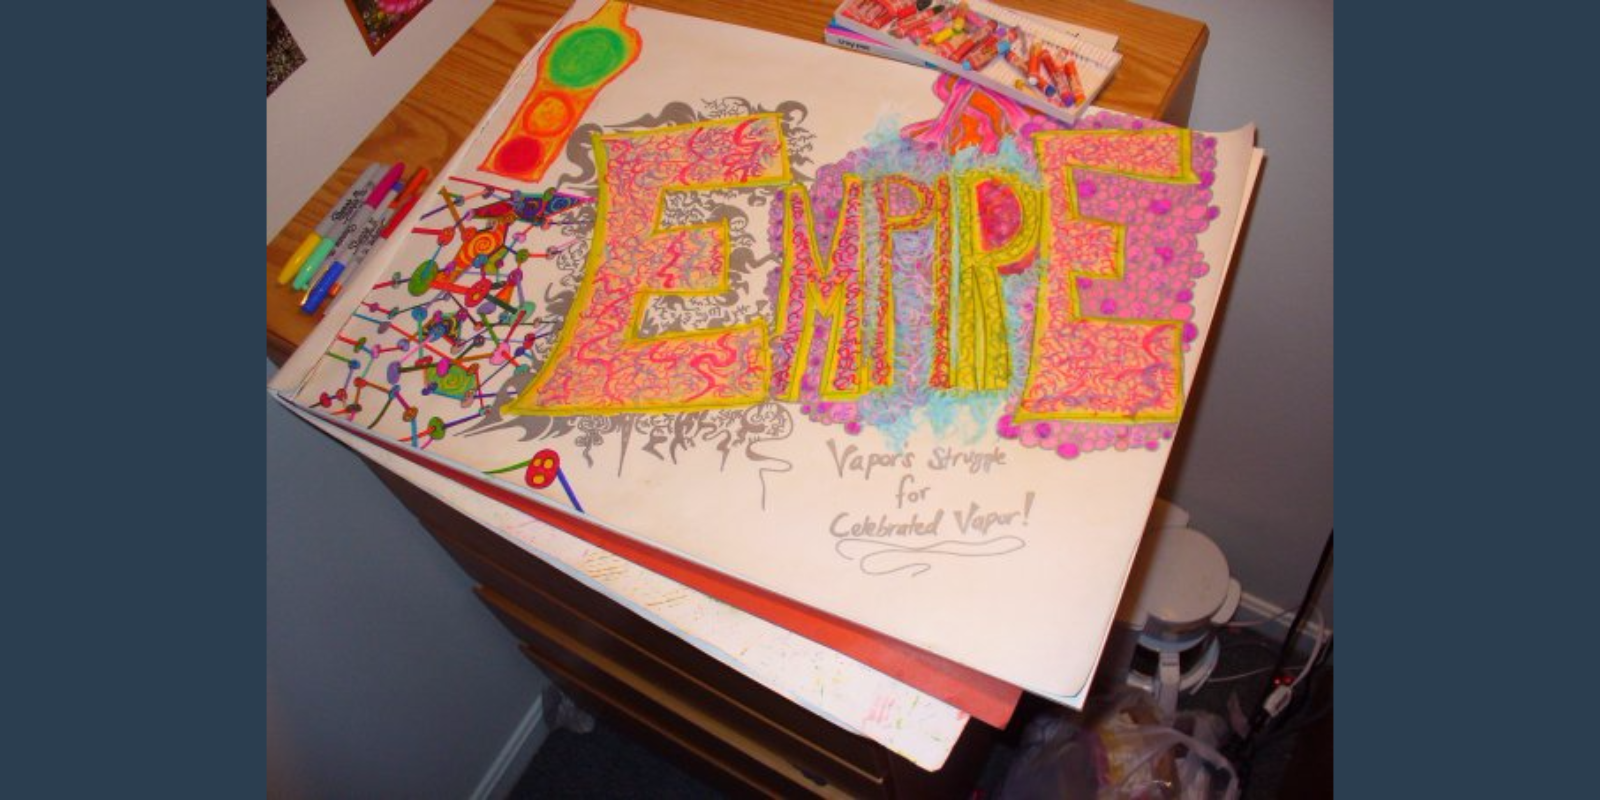 EMPIRE
Vapor's Struggle
for
Celebrated Vapor!